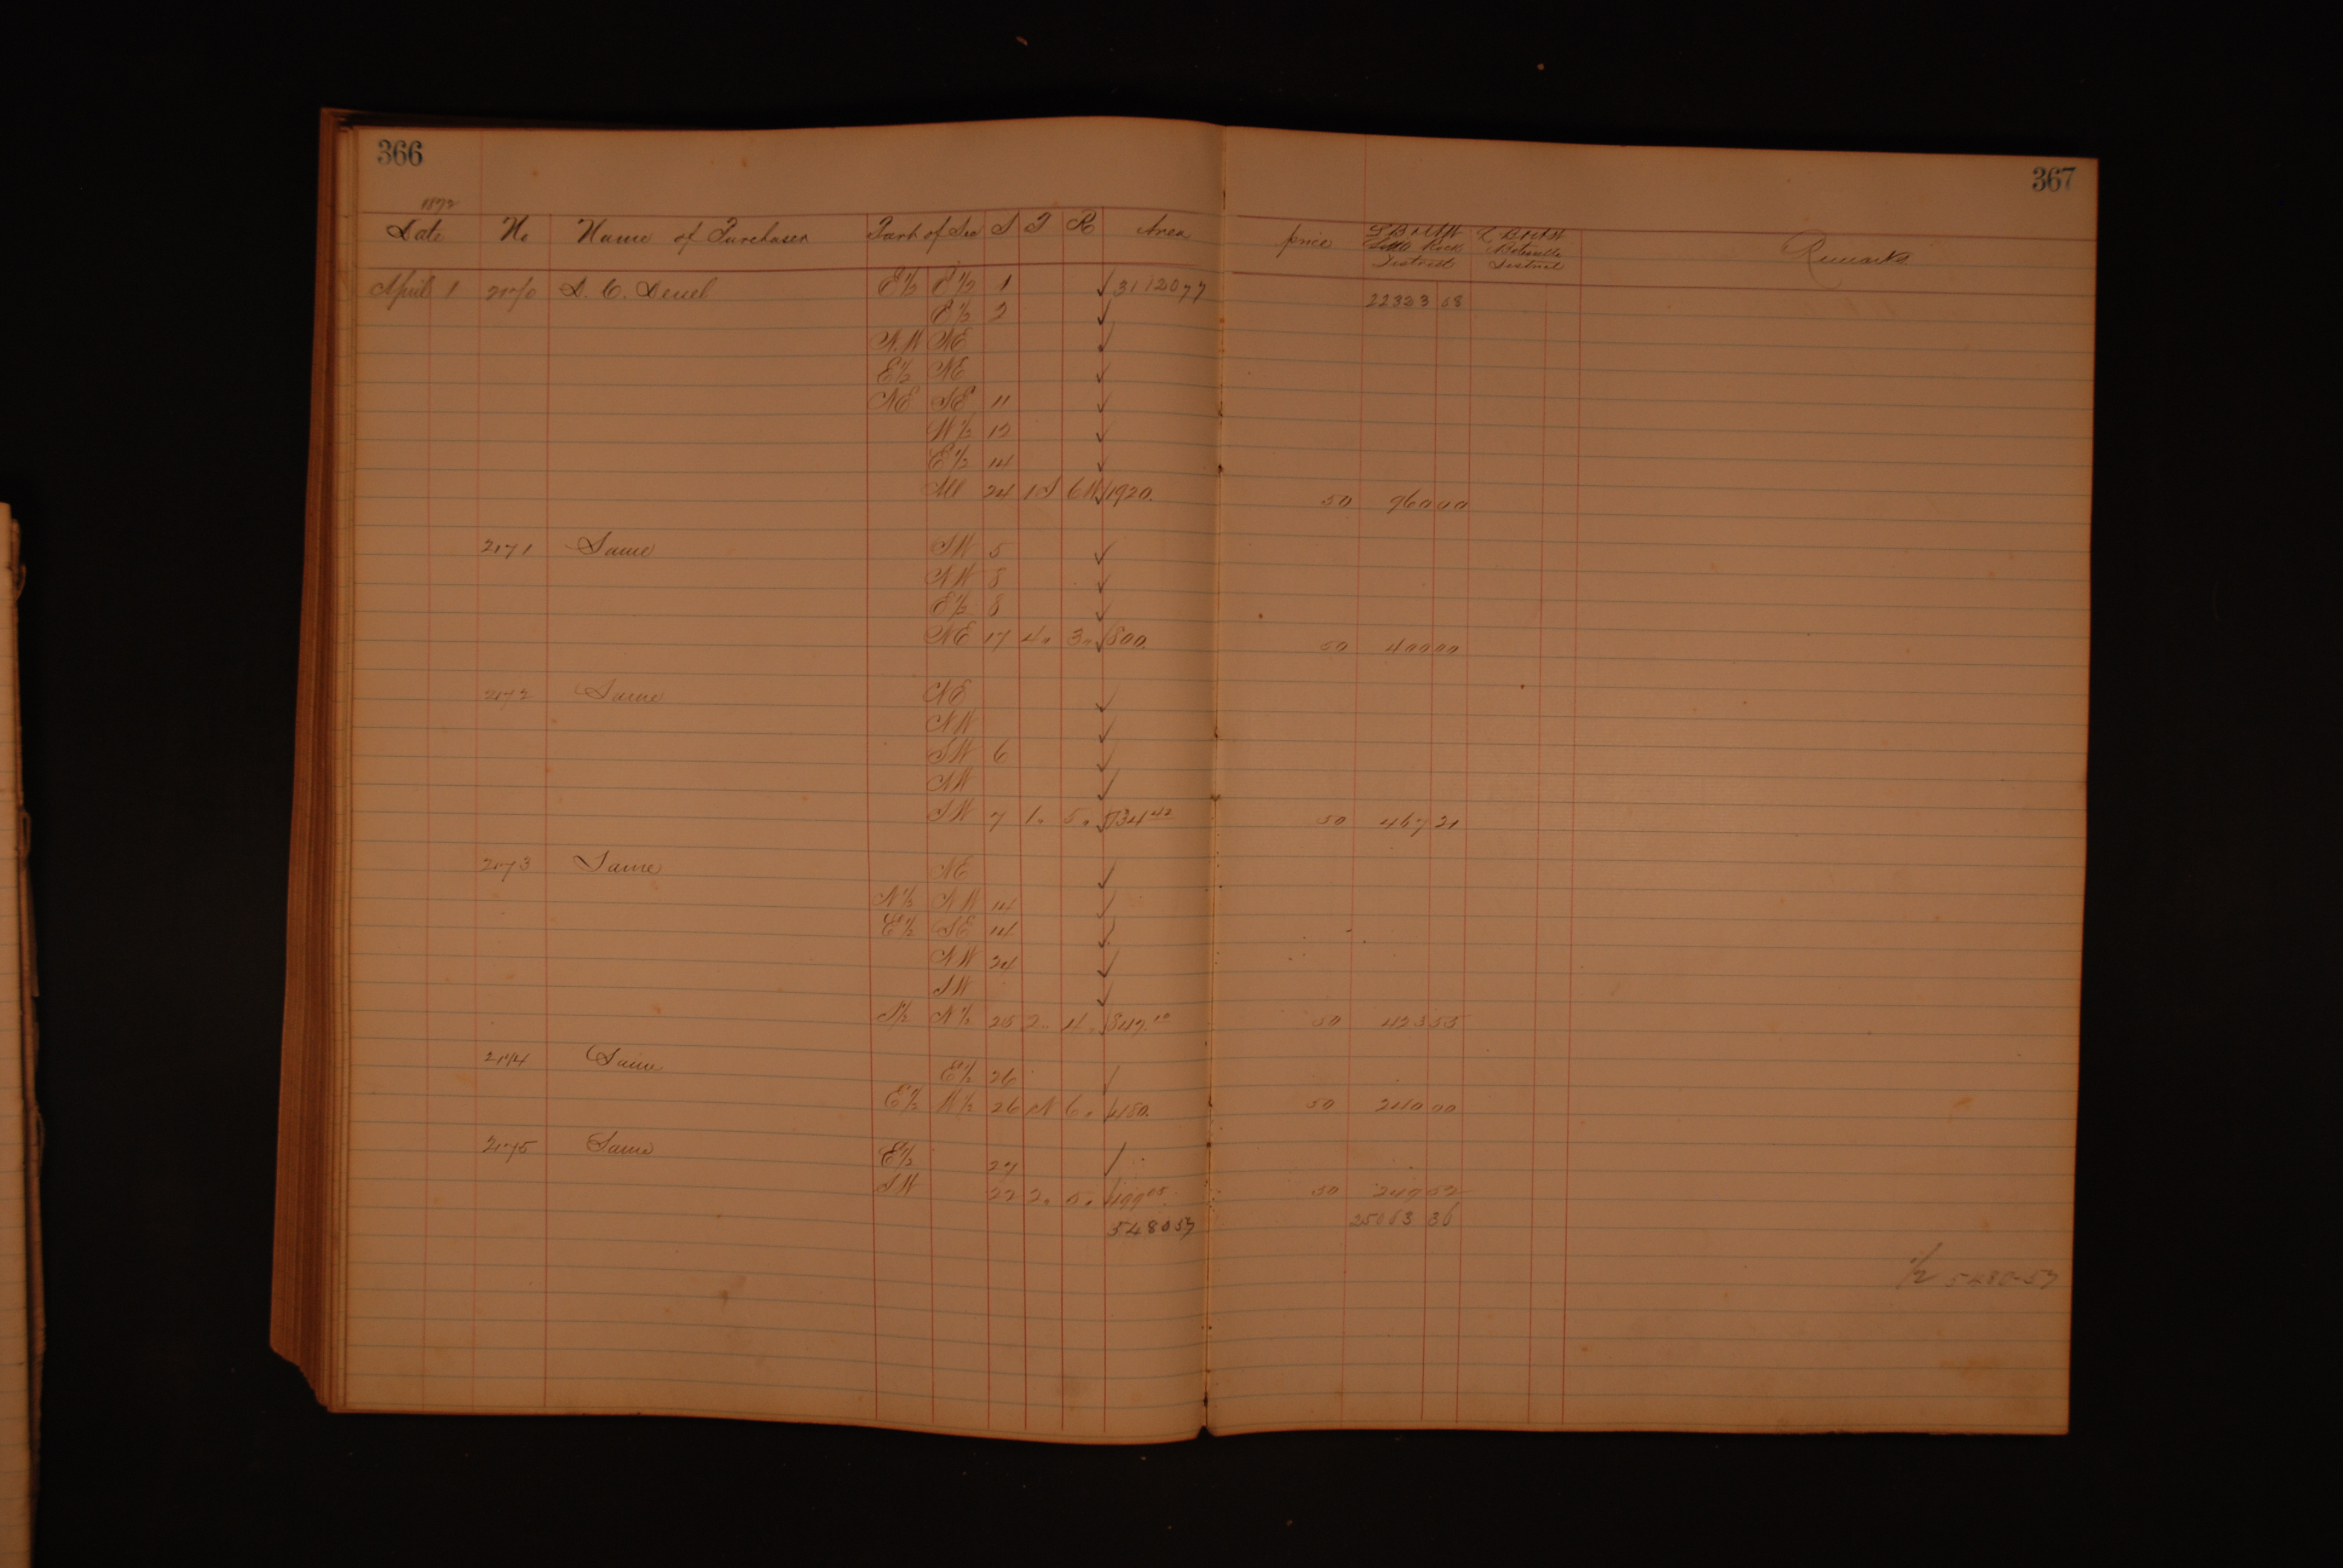 366
367
1872
Date No Name of Purchaser Part of Sec S T R Area price L. R. & Ft. S. Little Rock District Remarks
April 1 2170 E½ E½ 1 ✓ 3112077 22323 68
E½ 2 ✓
N.W NE ✓
E½ NE ✓
NE SE 11 ✓
W½ 12 ✓
E½ 14 ✓
All 24 1 S 6 W ✓ 1920. 50 960 00
2171 Same SW 5 ✓
NW 8 ✓
E½ 8 ✓
NE 17 4 " 3 " ✓ 800. 50 400 00
2172 Same NE ✓
NW ✓
SW 6 ✓
NW ✓
SW 7 1 " 5 " ✓ 934 42 50 467 21
2173 Same NE ✓
N½ NW 14 ✓
E½ SE 14 ✓
NW 24 ✓
SW ✓
S½ N½ 25 2 " 4 " ✓ 847.10 50 423 55
2174 Same E½ 26 ✓
E½ W½ 26 N 6 " ✓ 480. 50 240 00
2175 Same E½ 27 ✓
SW 22 2 " 5 " ✓ 499 05 50 249 52
5480 57 25063 36
½ 5480-57